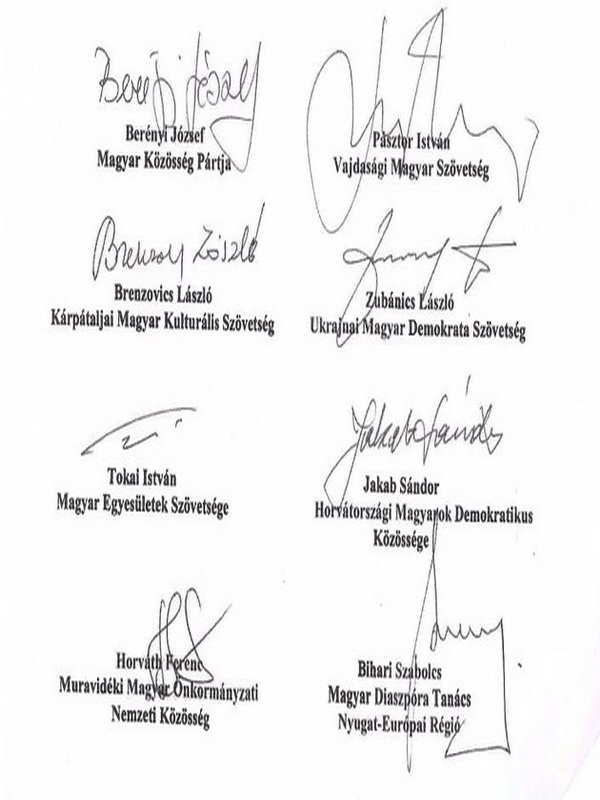 Berényi József
Berényi József
Magyar Közösség Pártja
Pásztor István
Vajdasági Magyar Szövetség
Brenzov László
Brenzovics László
Kárpátaljai Magyar Kulturális Szövetség
Zubánics László
Ukrajnai Magyar Demokrata Szövetség
Tokai István
Magyar Egyesületek Szövetsége
Jakab Sándor
Jakab Sándor
Horvátországi Magyarok Demokratikus
Közössége
Horváth Ferenc
Muravidéki Magyar Önkormányzati
Nemzeti Közösség
Bihari Szabolcs
Magyar Diaszpóra Tanács
Nyugat-Európai Régió